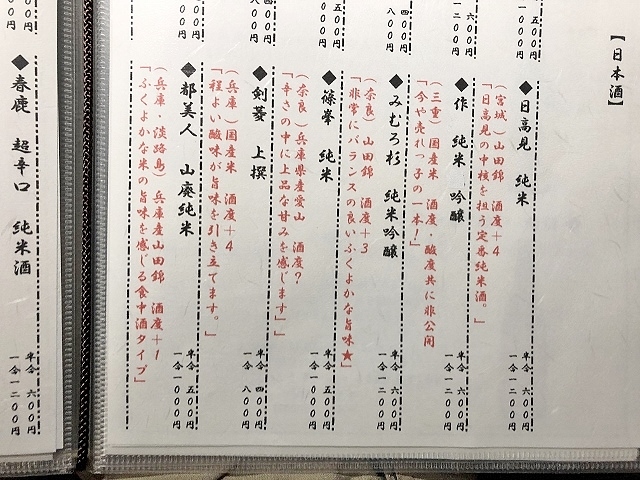 【日本酒】
五〇円
一〇〇円
六〇〇円
一二〇〇円
◆日高見 純米
半合 六〇〇円
一合 一二〇〇円
（宮城）山田錦 酒度＋4
「日高見の中核を担う定番純米酒。」
◆作 純米 吟醸
半合 六〇〇円
一合 一二〇〇円
（三重）国産米 酒度・酸度共に非公開
「今や売れっ子の一本！」
◆みむろ杉 純米吟醸
半合 六〇〇円
一合 一二〇〇円
（奈良）山田錦 酒度＋3
「非常にバランスの良いふくよかな旨味★」
◆篠峯 純米
半合 五〇〇円
一合 一〇〇〇円
（奈良）兵庫県産愛山 酒度？
「辛さの中に上品な甘みを感じます」
◆剣菱 上撰
半合 四〇〇円
一合 八〇〇円
（兵庫）国産米 酒度＋4
「程よい酸味が旨味を引き立てます。」
◆都美人 山廃純米
半合 五〇〇円
一合 一〇〇〇円
（兵庫・淡路島）兵庫産山田錦 酒度＋1
「ふくよかな米の旨味を感じる食中酒タイプ」
◆春鹿 超辛口 純米酒
半合 六〇〇円
一合 一二〇〇円